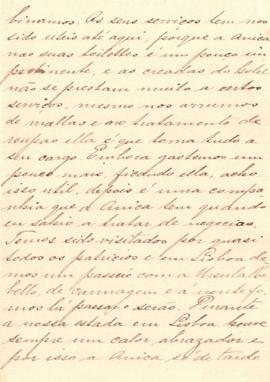 binamos. Os seus serviços tem nos
sido uteis até aqui, porque a Anica
nas suas toilettes é um pouco im
pertinente, e as creadas do hotel
não se prestam muito a certos
servidos, mesmo nos arrumos
de mallas e no tratamento de
roupas ella é que toma tudo a
seu cargo. Embora gastemos um
pouco mais, ficando ella, acho
isso util, depois é uma compa
nhia que a Anica tem quando
eu sahio a tratar de negocios.
Temos sido visitados por quasi
todos os patricios e em Lisboa de
mos um passeio com a Ursula Re
bello, de carruagem e á noute fo
mos lá passar o serão. Durante
a nossa estada em Lisboa houve
sempre um calor abrazador e
por isso a Anica só de tarde